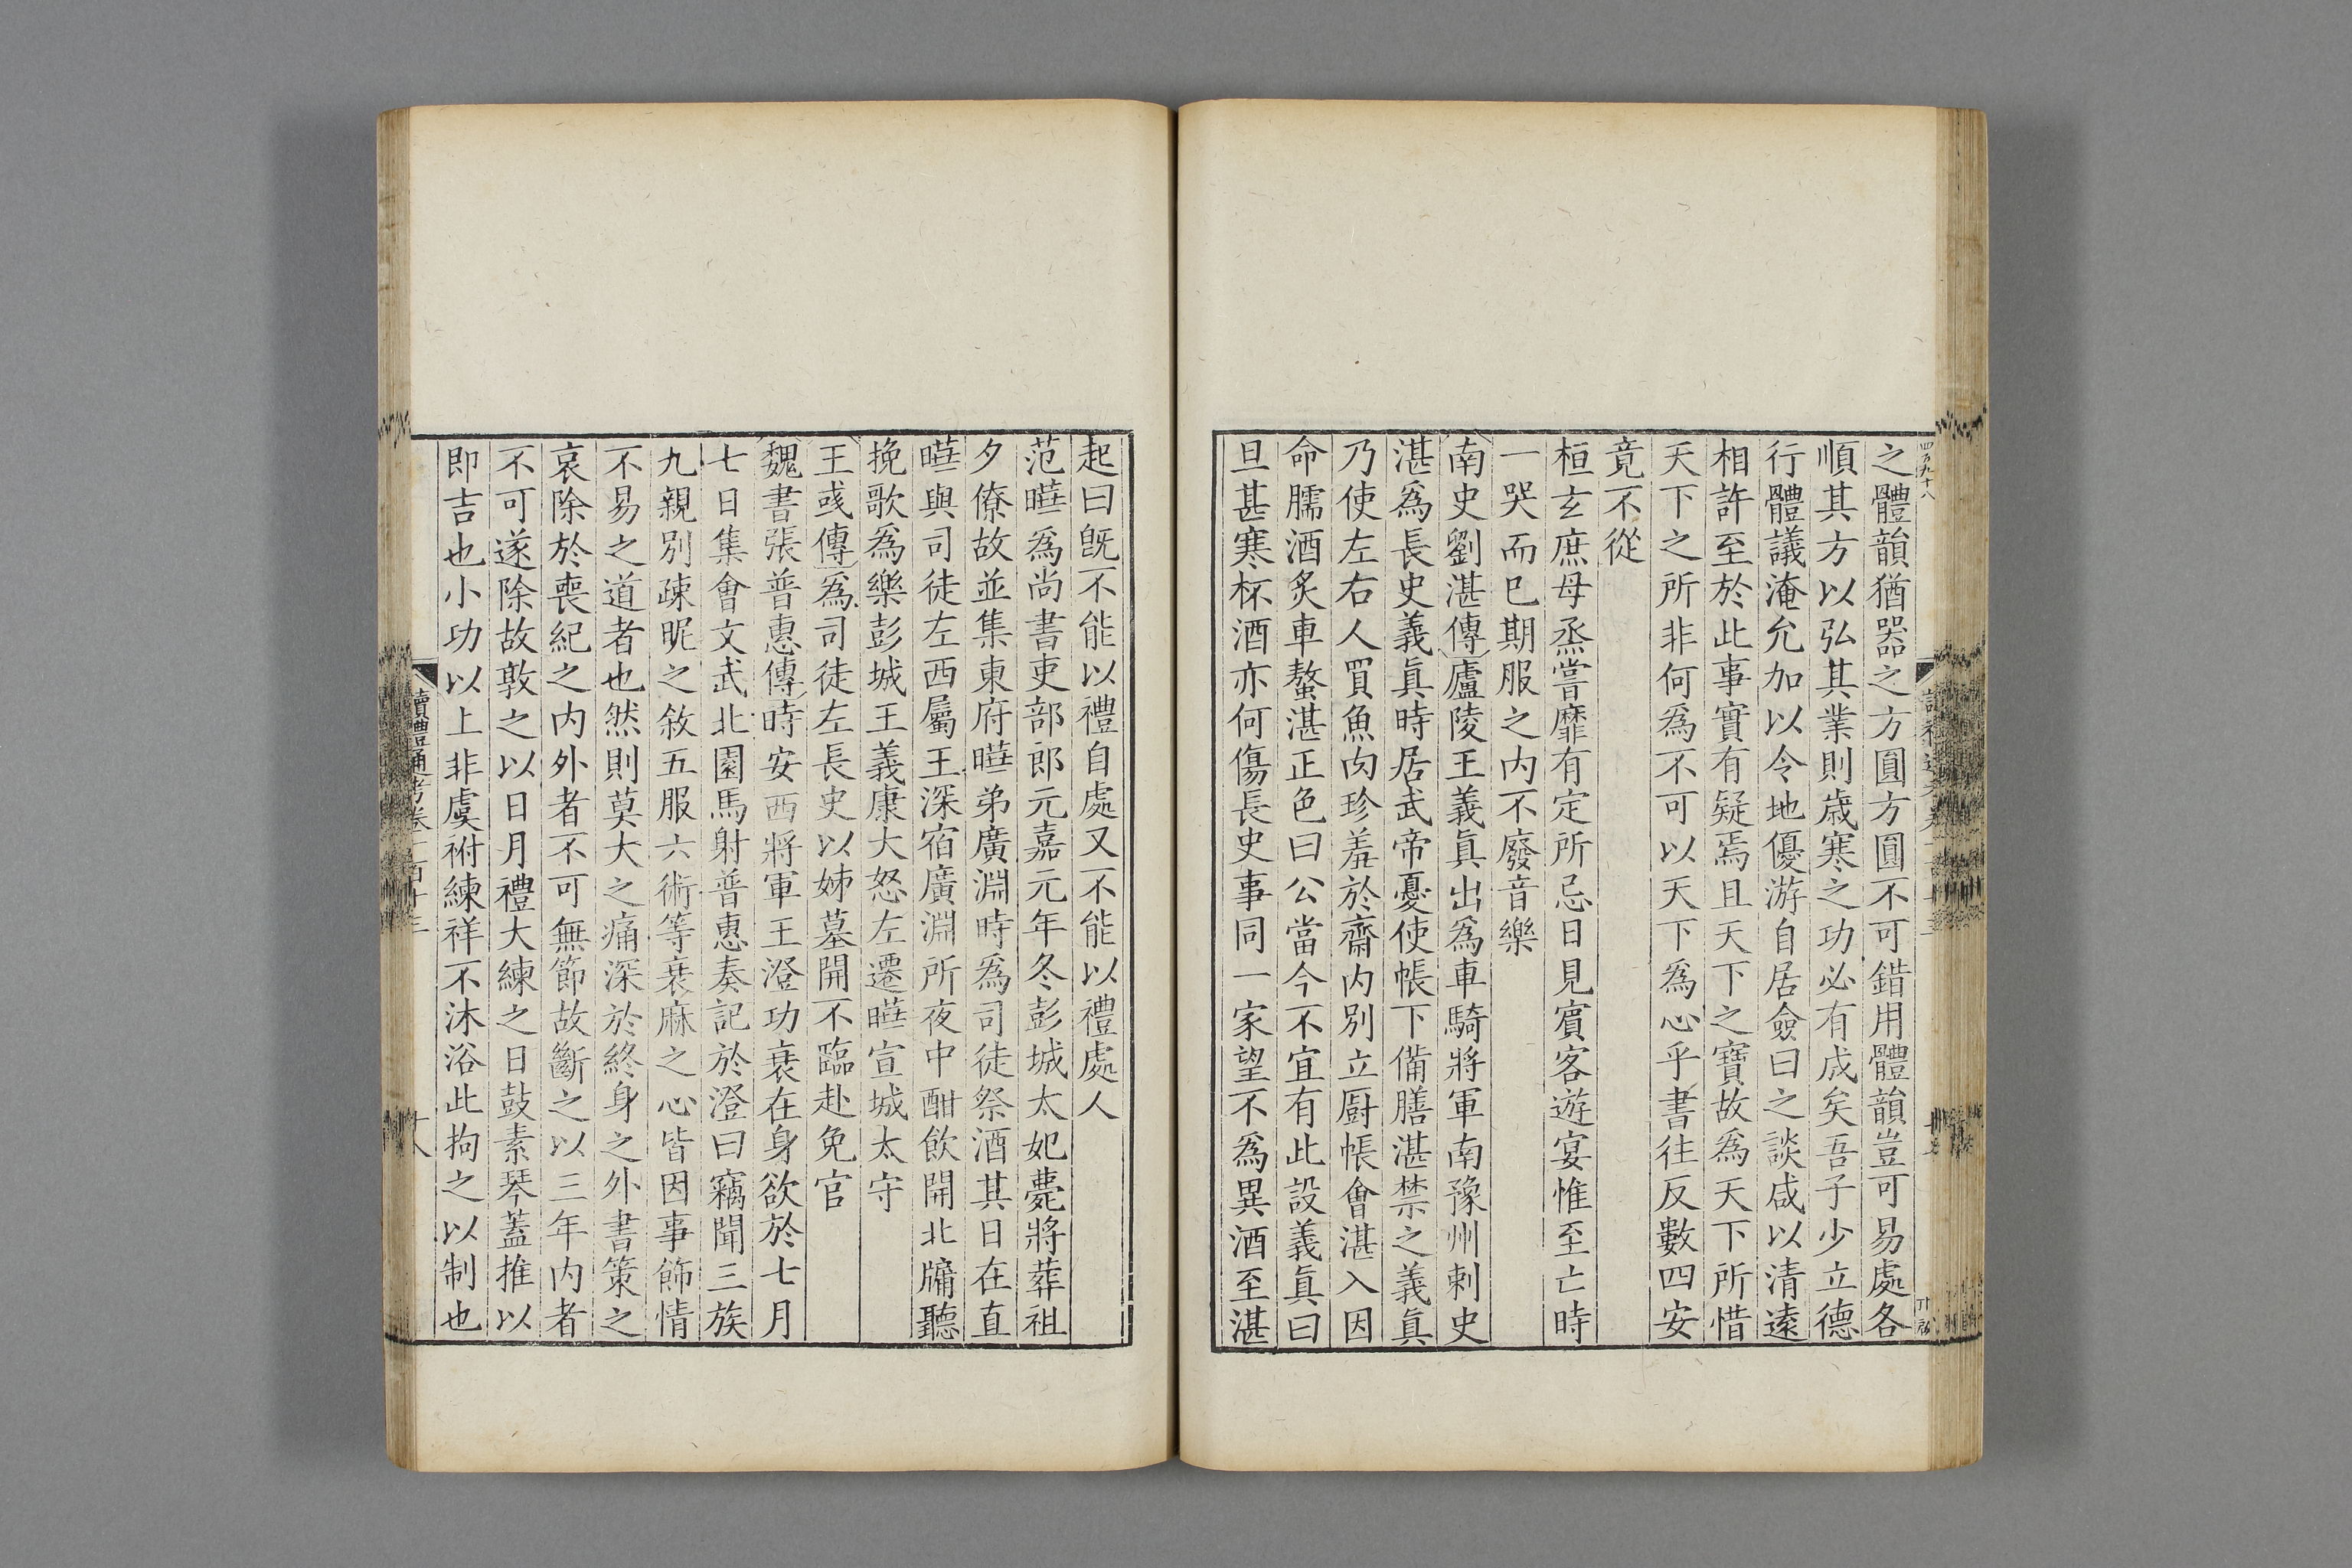 之體韻猶器之方圓方圓不可錯用體韻豈可易處各
順其方以弘其業則歲寒之功必有成矣吾子少立德
行體議淹允加以令地優游自居僉曰之談咸以清遠
相許至於此事實有疑焉且天下之寶故爲天下所惜
天下之所非何爲不可以天下爲心乎書往反數四安
竟不從
桓玄庶母烝嘗靡有定所忌日見賓客遊宴惟至亡時
一哭而已期服之内不廢音樂
南史劉湛傳廬陵王義眞出爲車騎將軍南豫州刺史
湛爲長史義眞時居武帝憂使帳下備膳湛禁之義眞
乃使左右人買魚肉珍羞於齋内別立厨帳會湛入因
命臑酒炙車螯湛正色曰公當今不宜有此設義眞曰
旦甚寒杯酒亦何傷長史事同一家望不爲異酒至湛
起曰旣不能以禮自處又不能以禮處人
范曄爲尚書吏部郎元嘉元年冬彭城太妃薨將葬祖
夕僚故並集東府曄弟廣淵時爲司徒祭酒其日在直
曄與司徒左西屬王深宿廣淵所夜中酣飲開北牖聽
挽歌爲樂彭城王義康大怒左遷曄宣城太守
王彧傳爲司徒左長史以姊墓開不臨赴免官
魏書張普惠傳時安西將軍王澄功衰在身欲於七月
七日集會文武北園馬射普惠奏記於澄曰竊聞三族
九親別疎昵之敘五服六術等衰麻之心皆因事飾情
不易之道者也然則莫大之痛深於終身之外書策之
哀除於喪紀之内外者不可無節故斷之以三年内者
不可遂除故敦之以日月禮大練之日鼓素琴蓋推以
即吉也小功以上非虞祔練祥不沐浴此拘之以制也
讀禮通考卷一百十三
十八